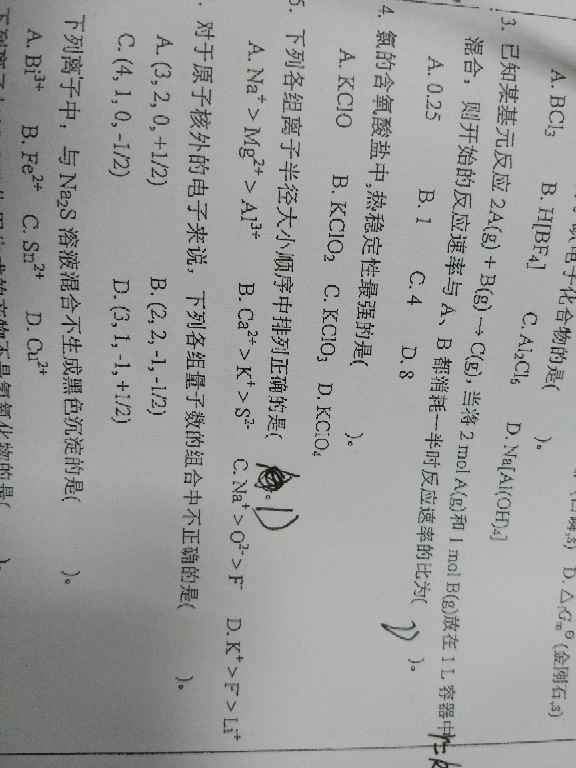 D. △fGmθ (金刚石,s)
电子化合物的是(      )。
A. BCl3  B. H[BF4]  C. Al2Cl6  D. Na[Al(OH)4]
3. 已知某基元反应 2A(g) + B(g) → C(g), 当将 2 mol A(g)和 1 mol B(g)放在 1 L 容器中
混合，则开始的反应速率与 A、B 都消耗一半时反应速率的比为(      )。
A. 0.25  B. 1  C. 4  D. 8
4. 氯的含氧酸盐中,热稳定性最强的是(      )。
A. KClO  B. KClO2  C. KClO3  D. KClO4
5. 下列各组离子半径大小顺序中排列正确的是(      )。
A. Na+ > Mg2+ > Al3+  B. Ca2+ > K+ > S2-  C. Na+ > O2- > F-  D. K+ > F- > Li+
. 对于原子核外的电子来说，下列各组量子数的组合中不正确的是(      )。
A. (3, 2, 0, +1/2)  B. (2, 2, -1, -1/2)
C. (4, 1, 0, -1/2)  D. (3, 1, -1, +1/2)
下列离子中，与 Na2S 溶液混合不生成黑色沉淀的是(      )。
A. Bi3+  B. Fe2+  C. Sn2+  D. Cu2+